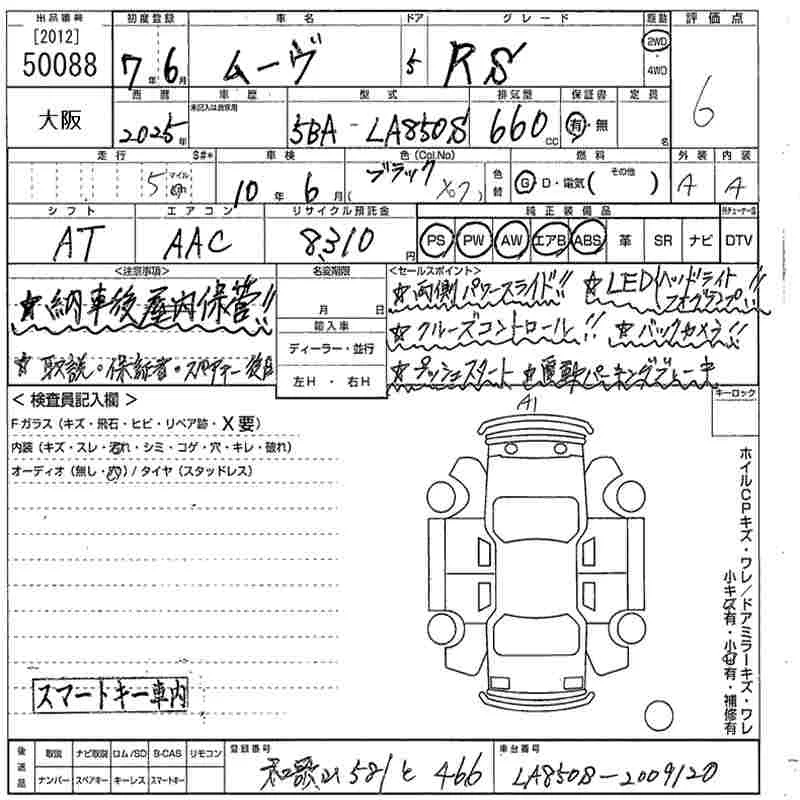 出品番号 初度登録 車名 ドア グレード 駆動 評価点
[2012]
50088 7年6月 ムーヴ 5 RS 2WD・4WD 6
大阪 西暦 車歴 型式 排気量 保証書 定員
未記入は自家用
2025年 5BA-LA850S 660cc 有・無 名
走行 S#* 車検 色(Col,No) 燃料 外装 内装
5 マイル km 10年6月 ブラック (X07) 色替 G・D・電気( その他 ) A A
シフト エアコン リサイクル預託金 純正装備品
AT AAC 8310円 PS PW AW エアB ABS 革 SR ナビ DTV
<注意事項> 名変期限 <セールスポイント>
☆納車後屋内保管!! 月 日 ☆両側パワースライド!! ☆LEDヘッドライトフォグランプ!!
輸入車 ☆クルーズコントロール!! ☆バックカメラ!!
ディーラー・並行
☆取説・保証書・スペアキー後日 左H・右H ☆プッシュスタート ☆電動パーキングブレーキ
<検査員記入欄> A1 キーロック
Fガラス(キズ・飛石・ヒビ・リペア跡・X要)
内装(キズ・スレ・汚れ・シミ・コゲ・穴・キレ・破れ)
オーディオ(無し・穴)/タイヤ(スタッドレス)
ホイルCPキズ・ワレ/ドアミラーキズ・ワレ
小キズ有・小凹有・補修有
スマートキー車内
後送品 取説 ナビ取説 ロム/SD B-CAS リモコン 登録番号 車台番号
ナンバー スペアキー キーレス スマートキー 和歌山581と466 LA850S-2009120